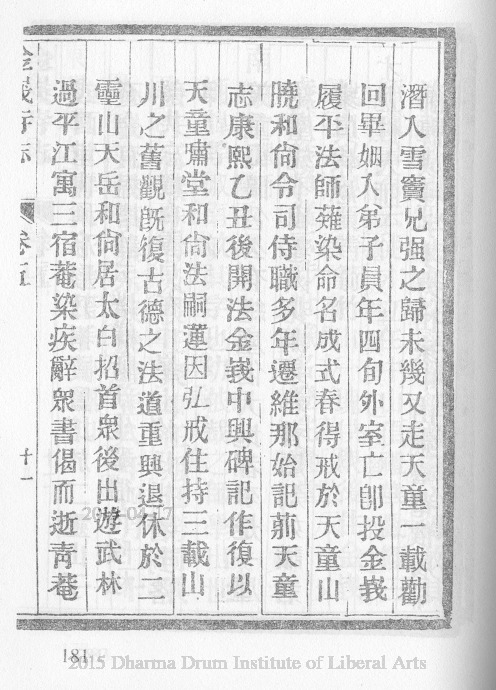 潛入雪竇兄强之歸未幾又走天童一載勸
回畢姻入弟子員年四旬外室亡卽投金峩
履平法師薙染命名成式春得戒於天童山
曉和尙令司侍職多年遷維那始記莂天童
志康熙乙丑後開法金峩中興碑記作復以
天童嘯堂和尙法嗣蓮因弘戒住持三載山
川之舊觀旣復古德之法道重興退休於二
靈山天岳和尙居太白招首衆後出遊武林
過平江寓三宿菴染疾辭衆書偈而逝靑菴
金峩寺志
卷上
十一
181
2015 Dharma Drum Institute of Liberal Arts